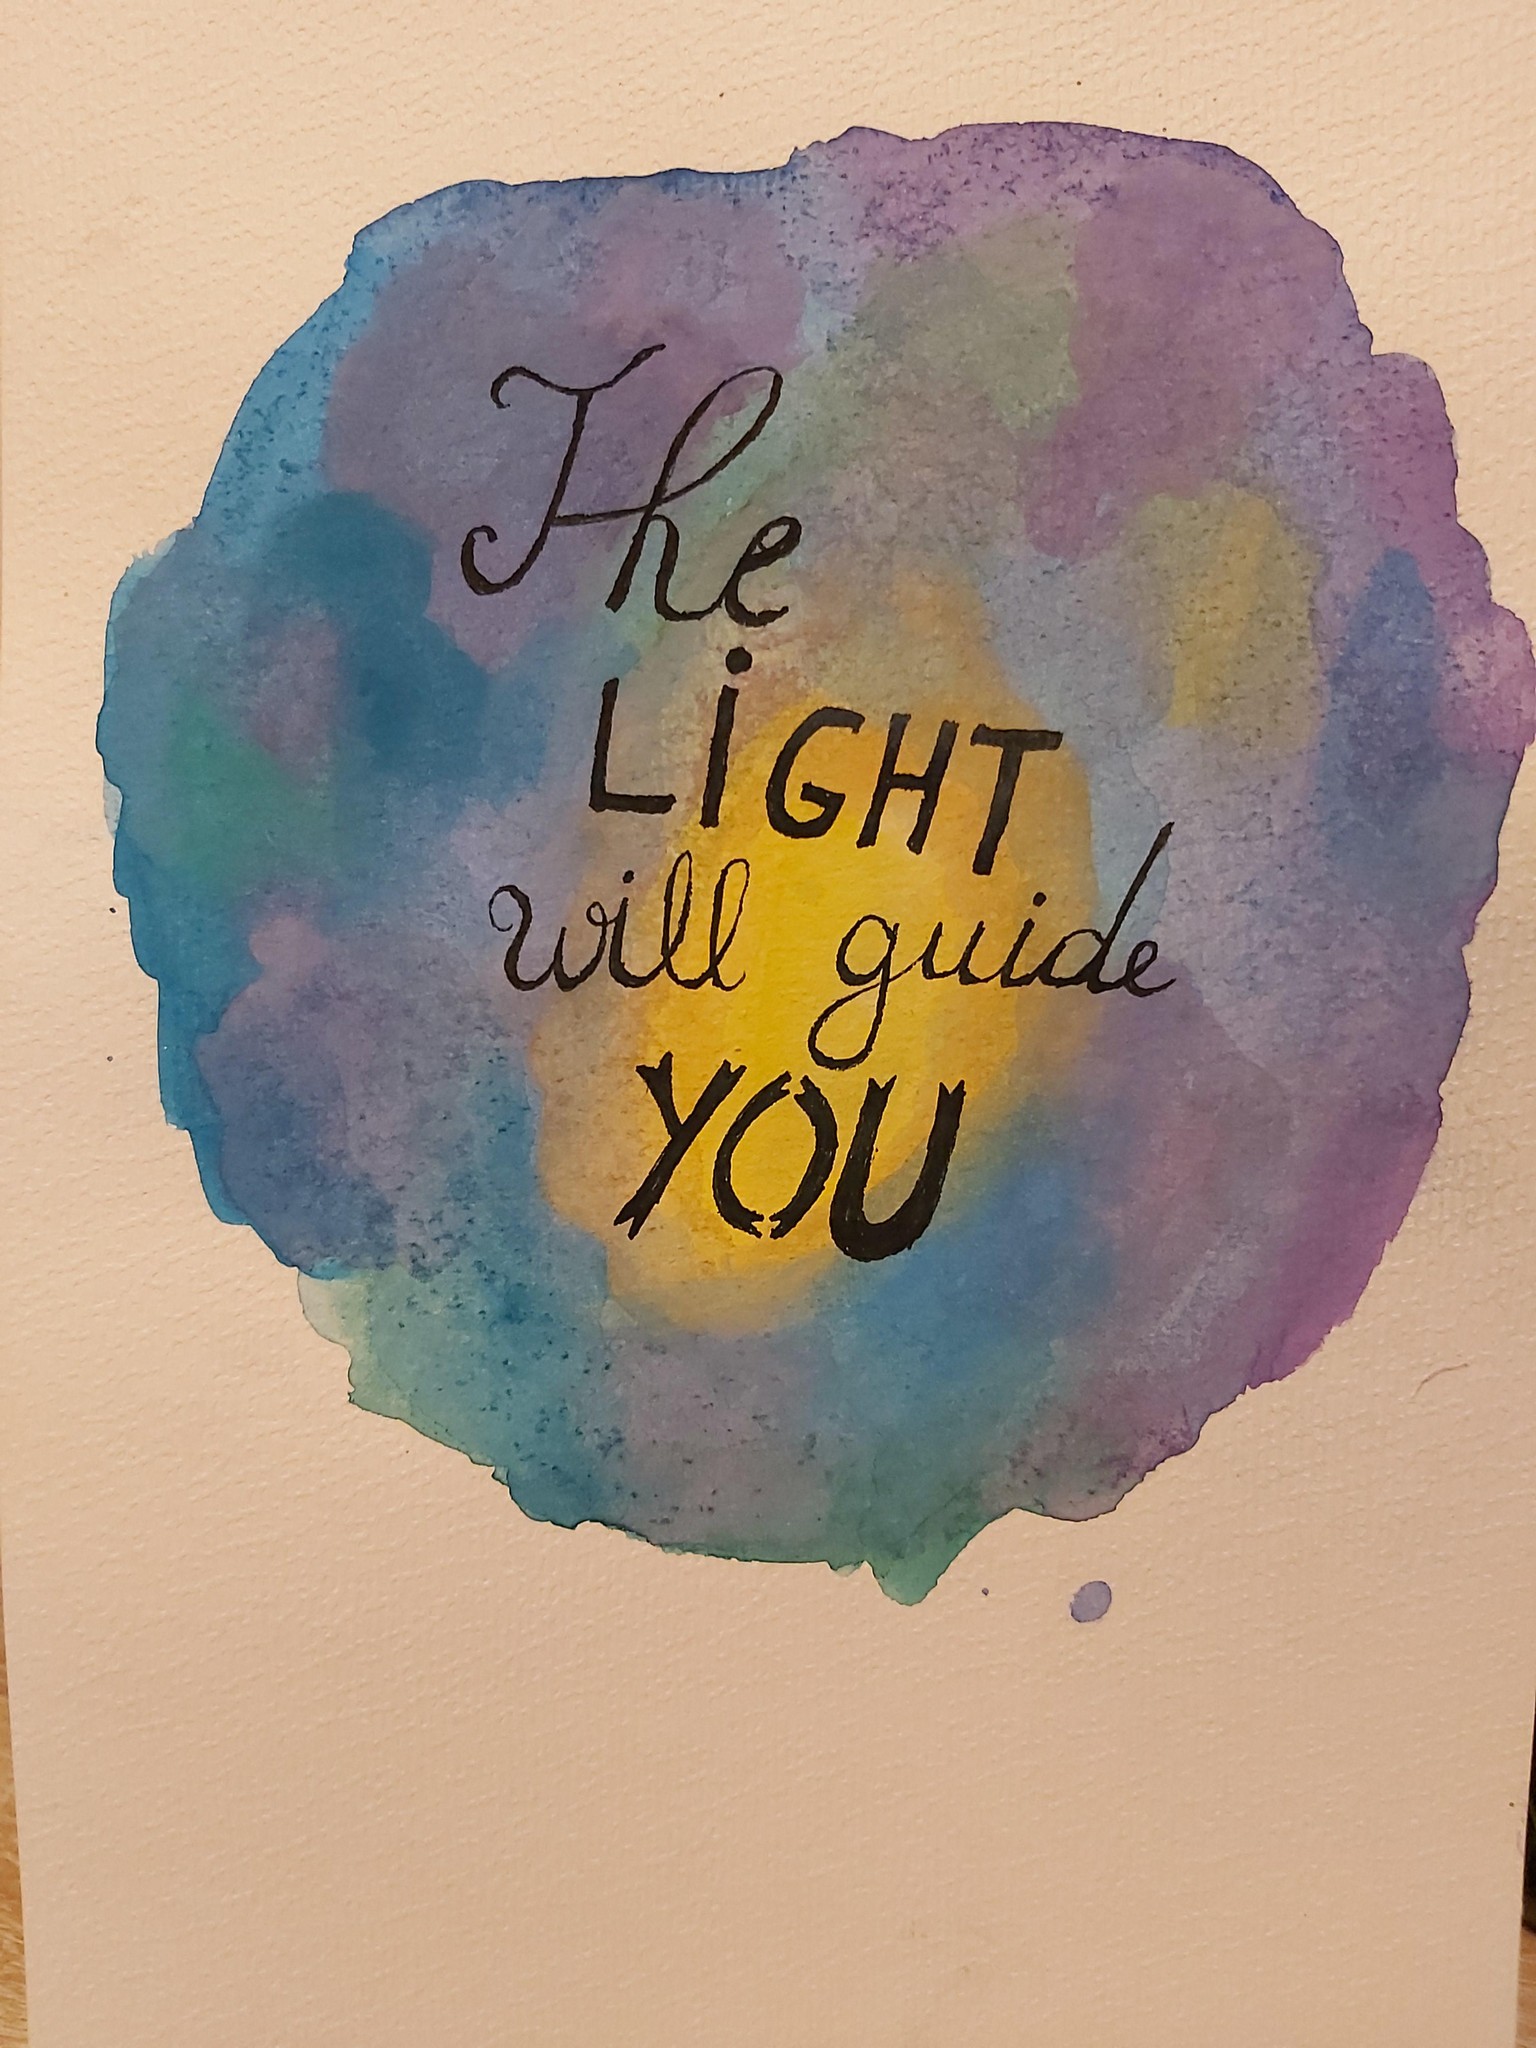 The
LiGHT
will guide
YOU